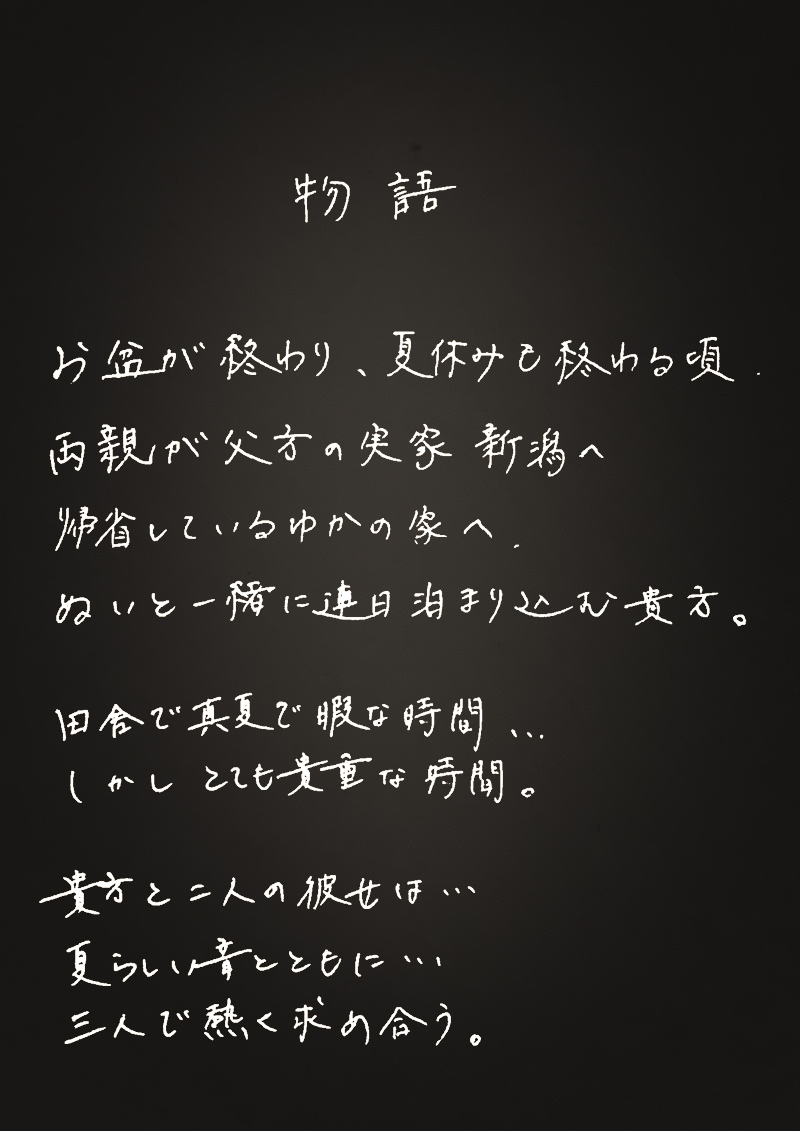 物語
お盆が終わり、夏休みも終わる頃.
両親が父方の実家 新潟へ
帰省しているゆかの家へ.
ぬいと一緒に連日泊まり込む貴方。
田舎で真夏で暇な時間...
しかしとても貴重な時間。
貴方と二人の彼女は…
夏らしい音とともに…
三人で熱く求め合う。